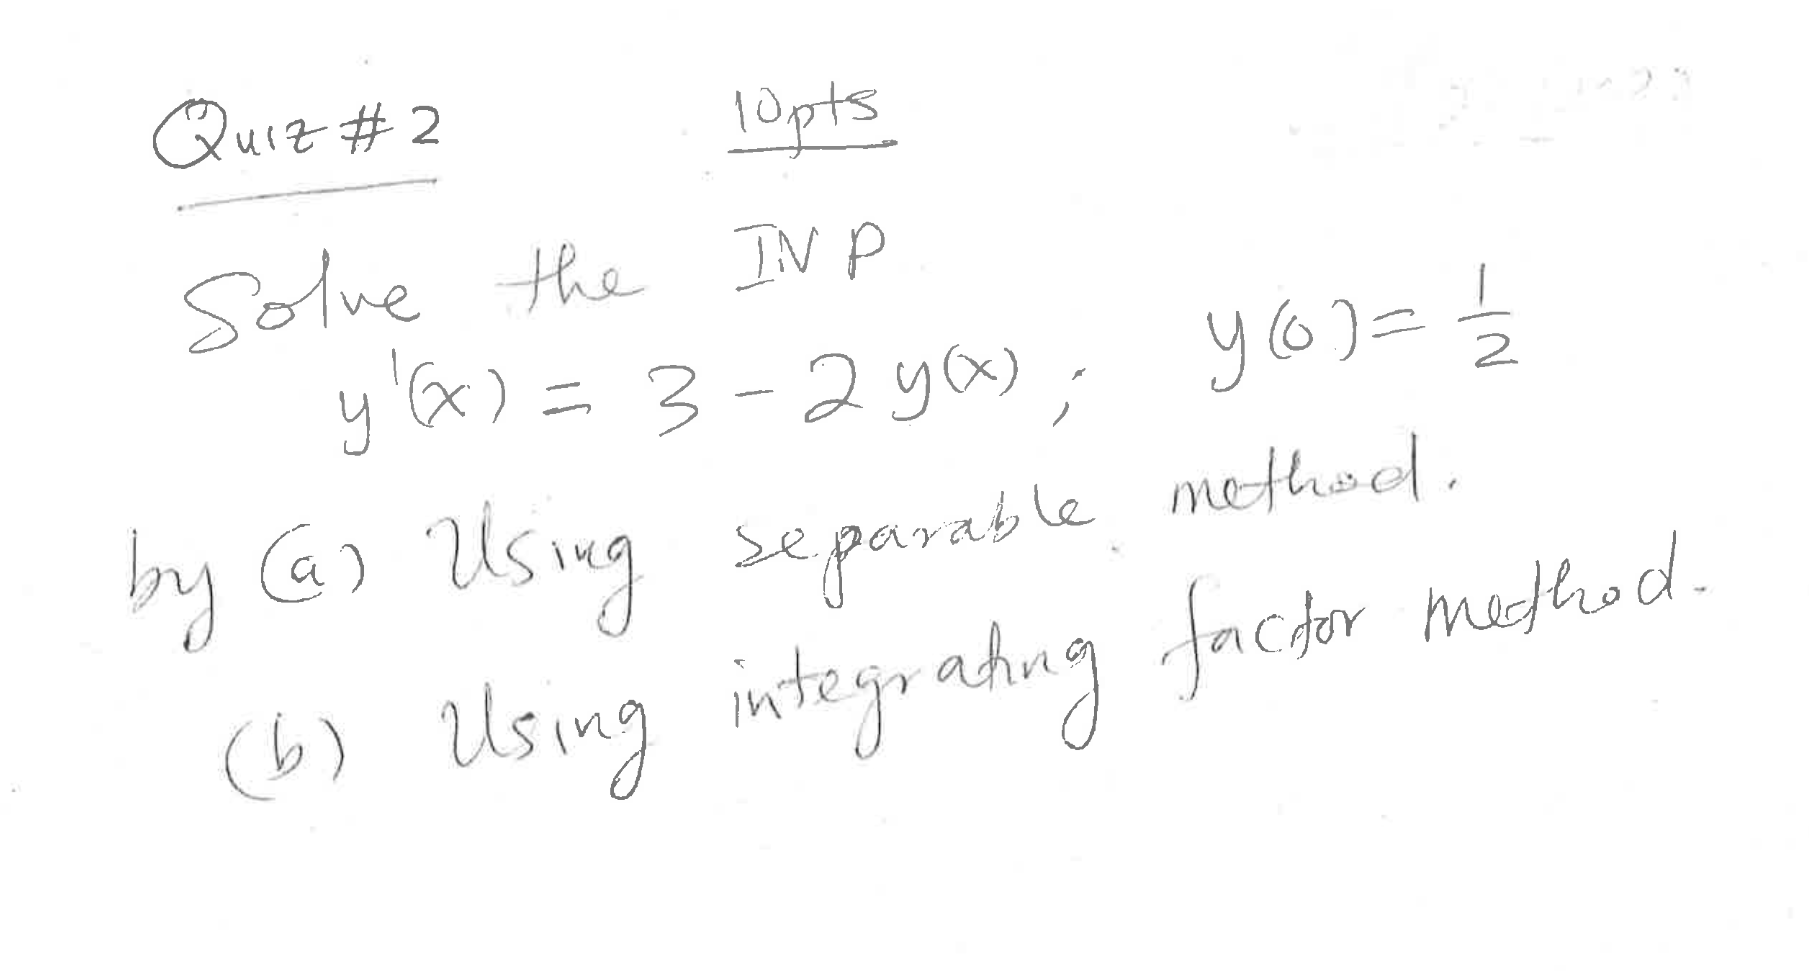 Quiz #2 10pts
Solve the IVP
y'(x) = 3 - 2y(x); y(0) = 1/2
by (a) Using separable method.
(b) Using integrating factor method.